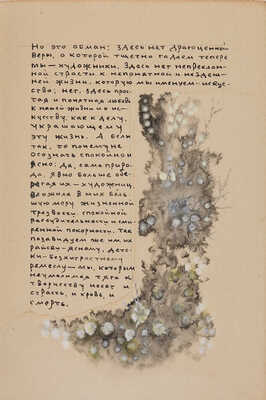 Но это обман: здесь нет драгоценной
веры, о которой тщетно гадаем теперь
мы — художники. Здесь нет непреклон-
ной страсти к непонятной и нездеш-
ней жизни, которую мы именуем искус-
ство; нет. Здесь прос-
тая и понятная любовь
к нашей жизни и к ис-
кусству, как к делу,
украшающему
эту жизнь. А если
так, то почему не
осознать спокойно и
ясно: да, сама приро-
да, явно больше обе-
регая их — художниц,
вложила в них боль-
шую меру жизненной
трезвости, спокойной
рассудительности и сми-
ренной покорности. Так
позавидуем же им их
райски-ясному, детс-
ки-бесхитростному
ремеслу — мы, которым
неумолимая тяга к
творчеству несет и
страсть, и кровь, и
смерть.